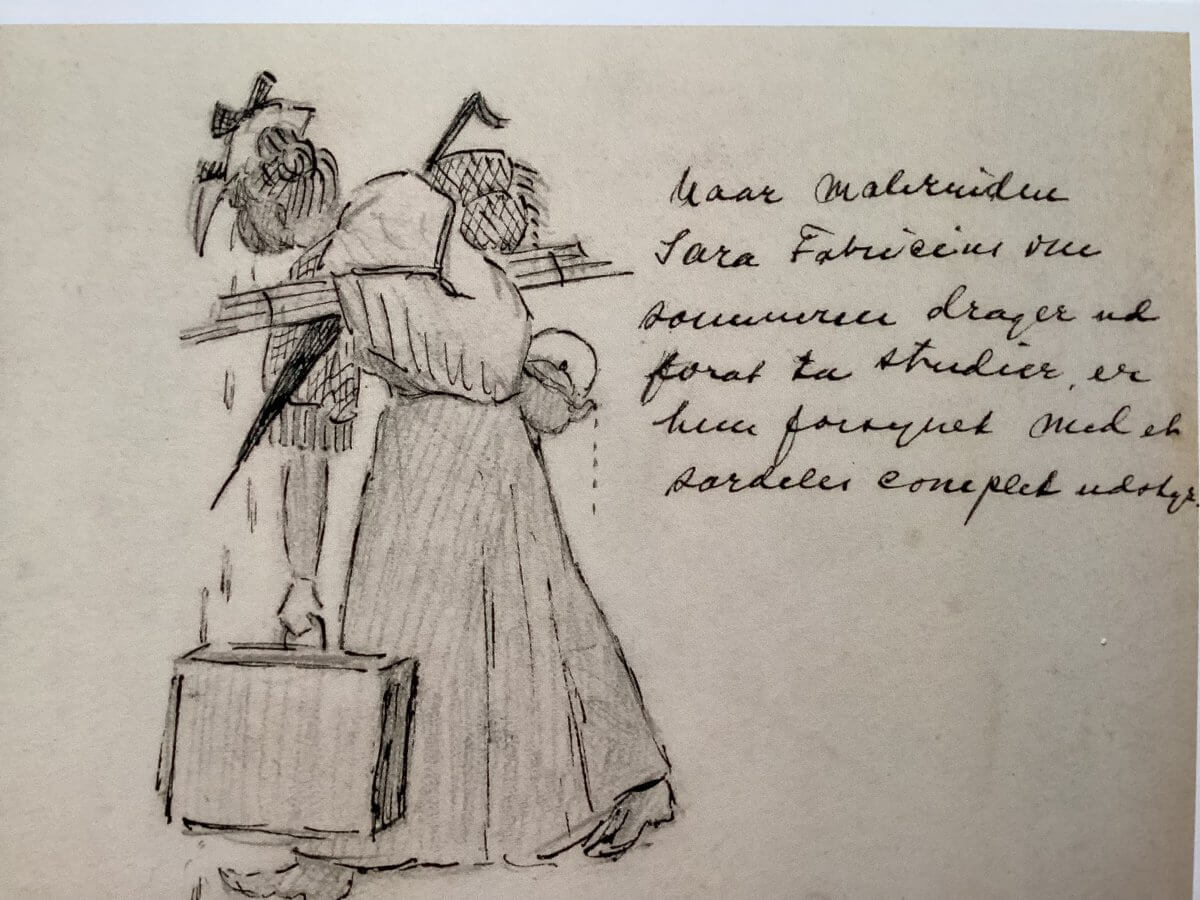 Naar malerinden
Sara Fabricius om
sommeren drager ud
forat ta studier, er
hun forsynet med et
sardeles complet udstyr.